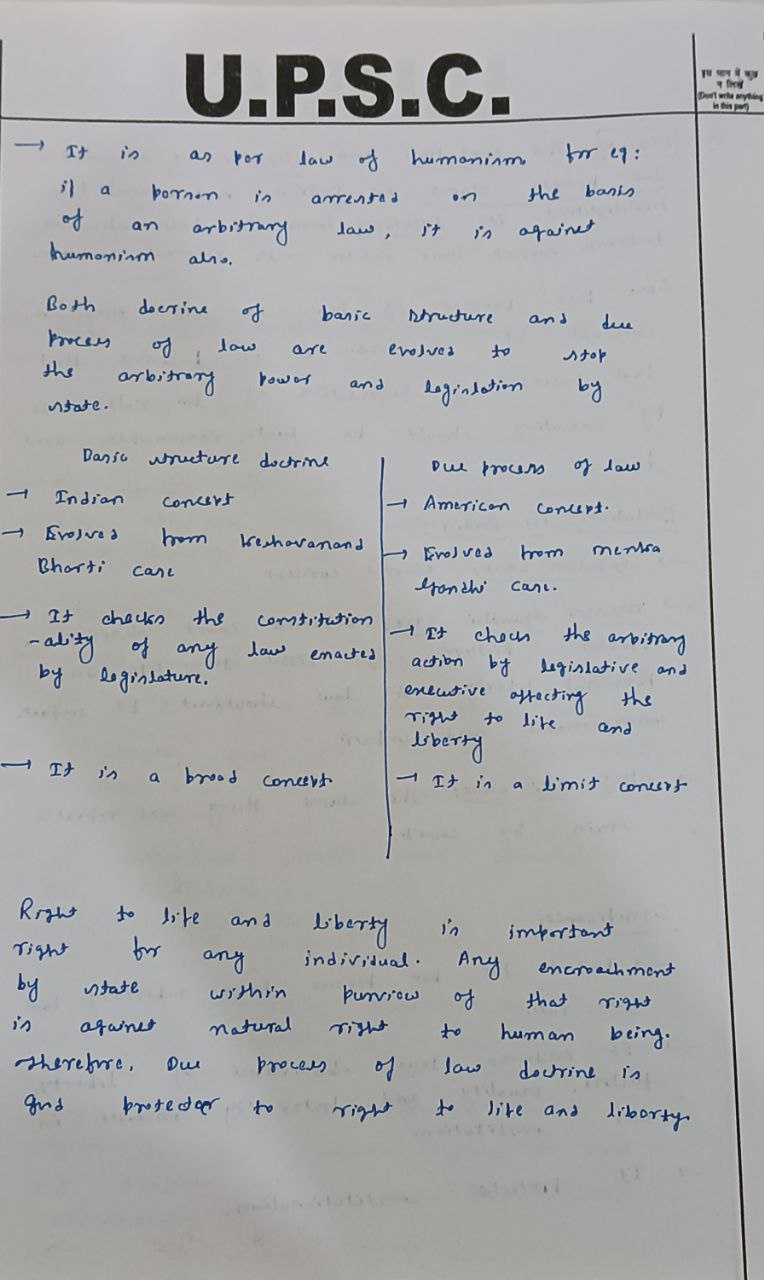 U.P.S.C.
इस भाग में कुछ
न लिखें
(Don't write anything
in this part)
→ It is as per law of humanism for eg:
if a person is arrested on the basis
of an arbitrary law, it is against
humanism also.
Both docrine of basic structure and due
process of law are evolved to stop
the arbitrary power and legislation by
state.
Basic structure doctrine
→ Indian concept
→ Evolved from Keshavanand
Bharti case
→ It checks the constitution
-ality of any law enacted
by legislature.
→ It is a broad concept
Due process of law
→ American concept.
→ Evolved from menka
Gandhi case.
→ It checks the arbitrary
action by legislative and
executive affecting the
right to life and
liberty
→ It is a limit concept
Right to life and liberty is important
right for any individual. Any encroachment
by state within purview of that right
is against natural right to human being.
Therefore, Due process of law doctrine is
protector to right to life and liberty.